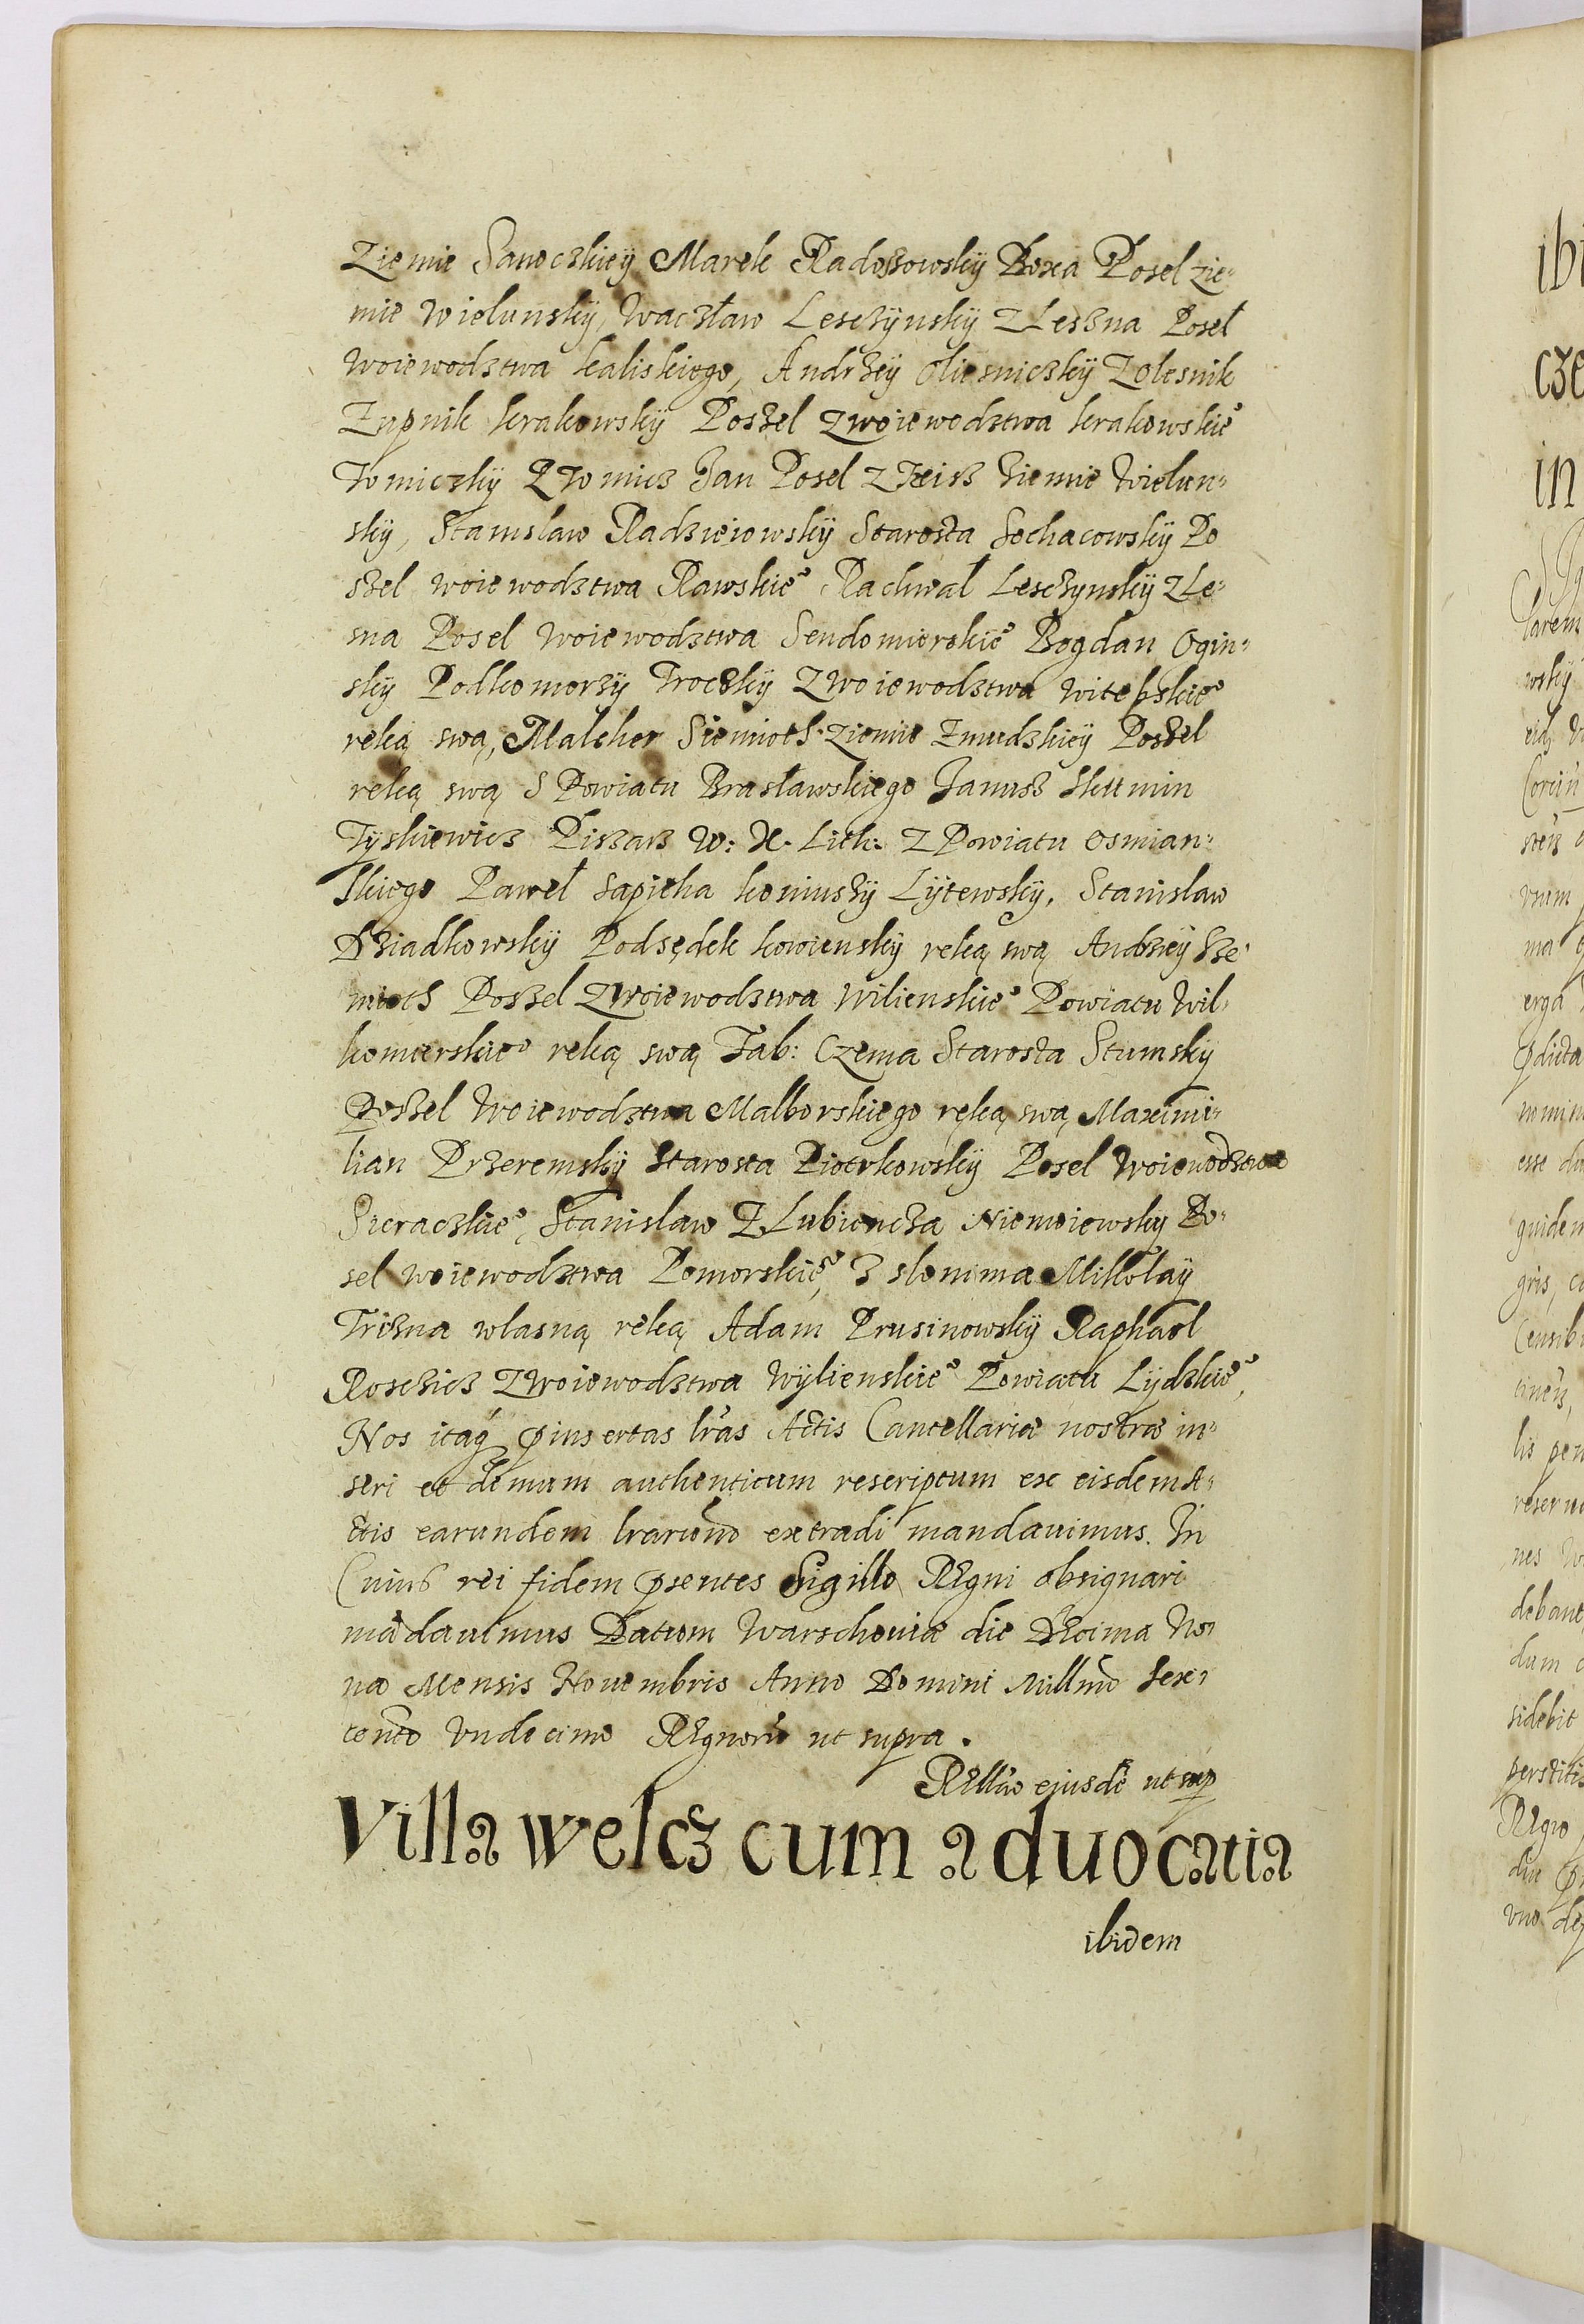 Ziemie Sanoczkiey Marek Radoszowsky Boxa Posel zie-
mie Wielunsky, Waczław Lesczynsky z Leszna Poseł
Woiewodztwa kaliskiego, Andrzey Oliesniczky Z Olesnik
Zupnik krakowsky Poszel z woiewodztwa krakowskie°
Tomiczky z Tomicz Jan Posel z teisz Ziemie Wielun-
sky, Stanislaw Radzieiowsky Starosta Sochacowsky Po
szel woiewodztwa Rawskie° Rachwał Lesczynsky z Le-
sna Posel Woiewodztwa Sendomierskie° Bogdan Ogin-
sky Podkomorzy Troczky z Woiewodztwa Witebskie°
ręką swą, Malcher Siemioth ziemie Zmudzkiey Poszel
ręką swą S Powiatu Brasławskiego Janusz Skumin
Tyskiewicz Piszarz W: X. Lith: z Powiatu Osmian-
skiego Paweł Sapieha koniuszy Lytewsky, Stanislaw
Dziadkowsky Podsędek kowiensky ręką swą Andrzey Sze-
mioth Poszel z Woiewodztwa Wilienskie° Powiatu Wil-
komierskie° ręką swą Fab: Czema Starosta Stumsky
Poszel Woiewodztwa Malborskiego ręką swą Maximi-
lian Przeremsky Starosta Piotrkowsky Posel Woiewodztwa
Sieraczkie°, Stanislaw Z Lubiencza Niemoiewsky Po-
sel woiewodztwa Pomorskie°, z slonima Mikolay
Trizna własną ręką Adam Prusinowsky Raphaol
Roschicz z Woiewodztwa Wylienskie° Powiatu Lydzkie°,
Nos itaq pinsertas lras Actis Cancellariæ nostræ in-
seri et demum authenticum rescriptum ex eisdem A-
ctis earundem lrarum extradi mandauimus. In
Cuius rei fidem psentes Sigillo Regni obsignari
mādauimus Datum Warschouiæ die Decima No-
na Mensis Nouembris Anno Domini Millmo Sex-
cento Vndecimo Regnorū ut supra.
Rellāo eiusdē ut sup
Villa Welcz cum aduocatia
ibidem